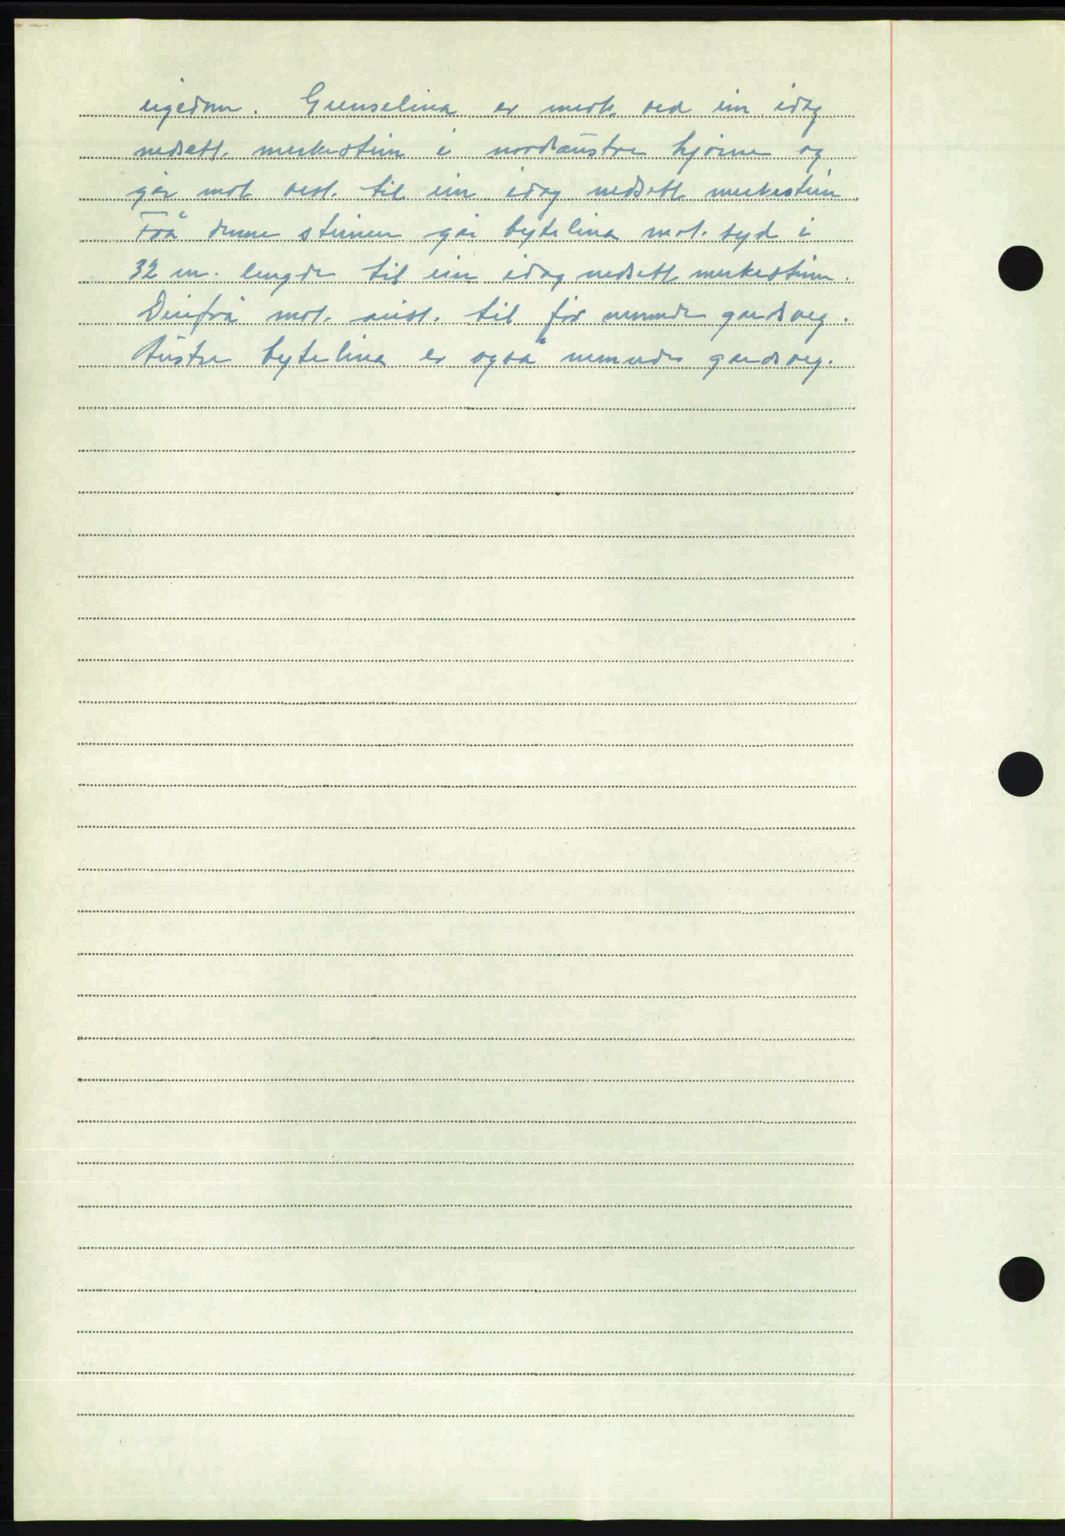 eigedom. Grenselina er merk. ved ein idag
nedsett merkestein i nordaustre hjørne og
går mot vest. til ein idag nedsett merkestein.
Frå denne steinen går bytelina mot. syd i
32 m. lengde til ein idag nedsett merkestein.
Derifrå mot. aust. til før nemnde gardsveg.
Austre bytelina er også nemnde gardsveg.